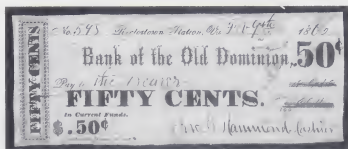 FIFTY CENTS
No. 595 Station, Va. 186
Bank of the Old Dominion, 50¢
Pay to the bearer
FIFTY CENTS.
In Current Funds.
$.50¢ Hammond Cashier